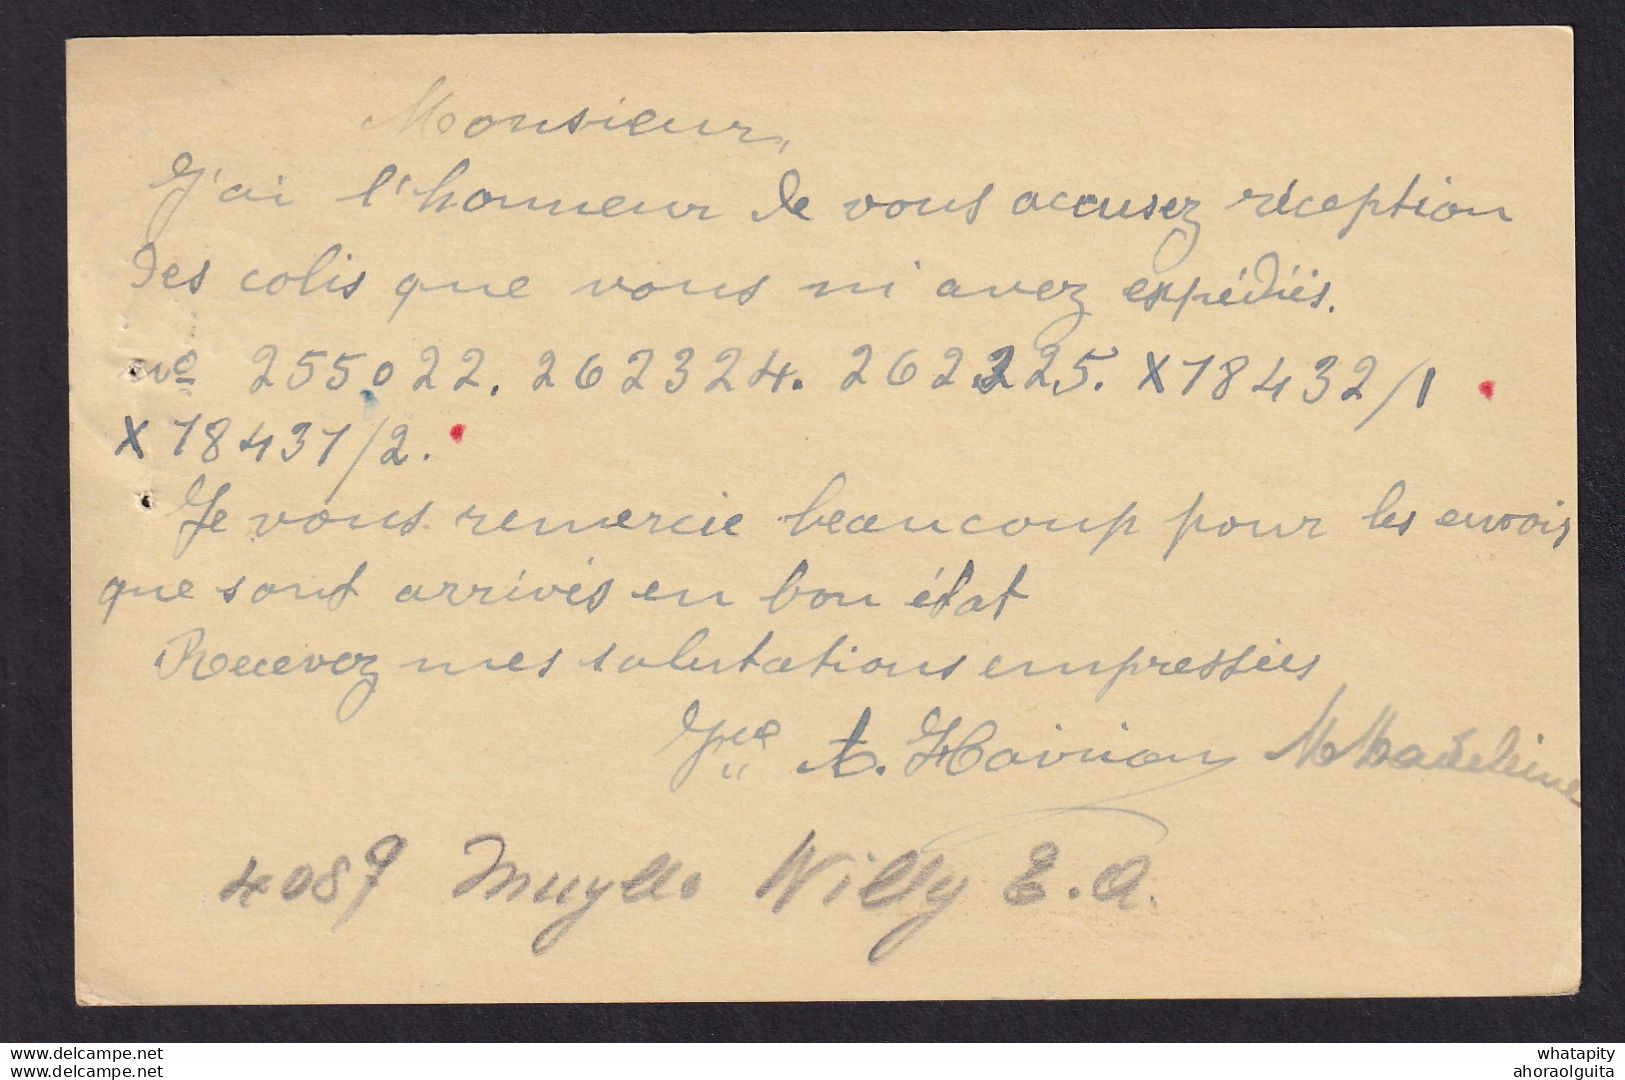 Monsieur,
J'ai l'honneur de vous accusez réception
des colis que vous m'avez expédiés.
No 255022. 262324. 262325. X18432/1
X 18431/2.
Je vous remercie beaucoup pour les envois
que sont arrivés en bon état
Recevez mes salutations empressées
A. Madeleine
4087 Willy E.A.
www.delcampe.net whatapity
www.delcampe.net ahoraolguita